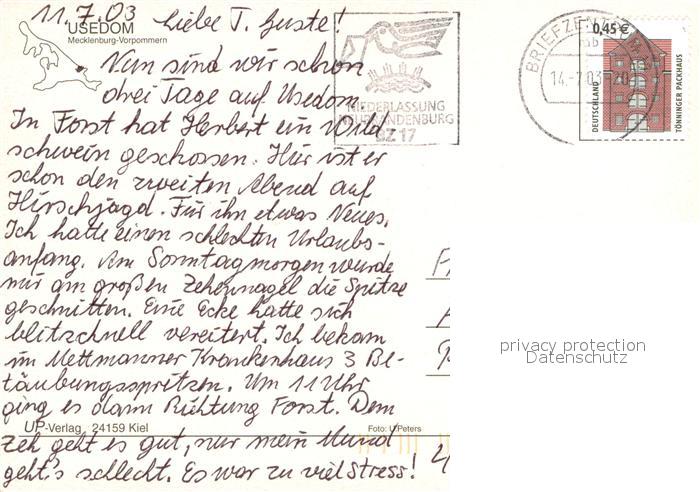 11.7.03 Liebe T. Guste!
USEDOM
Mecklenburg-Vorpommern
Nun sind wir schon
drei Tage auf Usedom.
In Forst hat Herbert ein Wild
schwein geschossen. Hier ist er
schon den zweiten Abend auf
Hirschjagd. Für ihn etwas Neues.
Ich hatte einen schlechten Urlaubs-
anfang. Am Sonntagmorgen wurde
mir am großen Zehennagel die Spitze
geschnitten. Eine Ecke hatte sich
blitzschnell vereitert. Ich bekam
im Mettmanner Krankenhaus 3 Be-
täubungsspritzen. Um 11 Uhr
ging es dann Richtung Forst. Dem
UP-Verlag, 24159 Kiel
Foto: U. Peters
Zeh geht es gut, nur mein Mund
geht's schlecht. Es war zu viel Stress!
NIEDERLASSUNG
NEUBRANDENBURG
BZ 17
BRIEFZENTRUM
14.-7.03-20
0,45 €
DEUTSCHLAND
TÖNNINGER PACKHAUS
privacy protection
Datenschutz